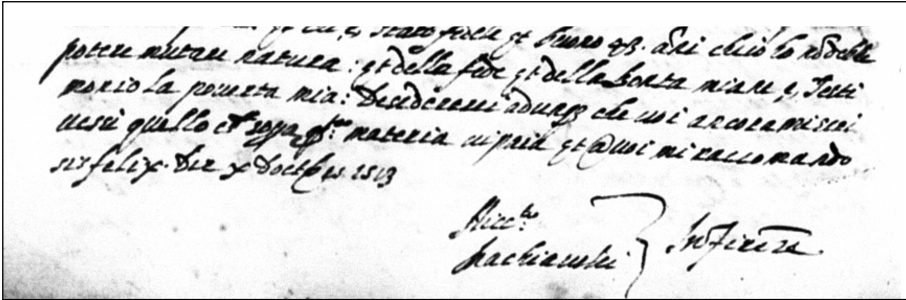 et chi è stato fedele et buono 43 anni ch io ho nõ debbe
potere mutare natura: et della fede et della bonta mia ne è testi
monio la poverta mia: desidererei adunq che voi ancora mi scri
vessi quello che sopra q.ta materia vi paia et a voi mi raccomando
sis felix. Die x Dcembris 1513
Nicc.lo
Machiavelli In Firenze